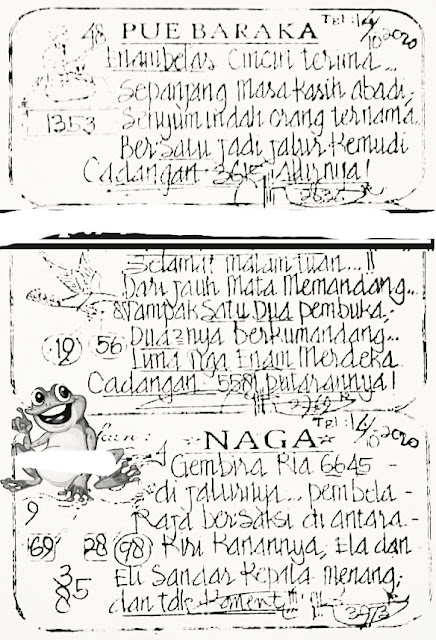 48 PUE BARAKA Tgl: 14/10 2020
Enambelas Cincin terima...
Sepanjang Masa Kasih abadi,
1353 Senyum indah orang ternama
Bersatu jadi jalur Kemudi
Cadangan 3615 alurnya!
Selamat malam tuan...!!
Dari jauh Mata Memandang..
Nampak Satu Dua pembuka,
19 56 Dua²nya berkumandang..
Lima nga Enam Merdeka
Cadangan putarannya!
NAGA Tgl: 14/10 2020
Gembira Ria 6645 -
di jalurnya... pembela -
9 Raja bersaksi di antara -
69 28 98 Kiri Kanannya, Ela dan
35 Eli Sandar Kepala menang,
8 dan tak Koment!!!